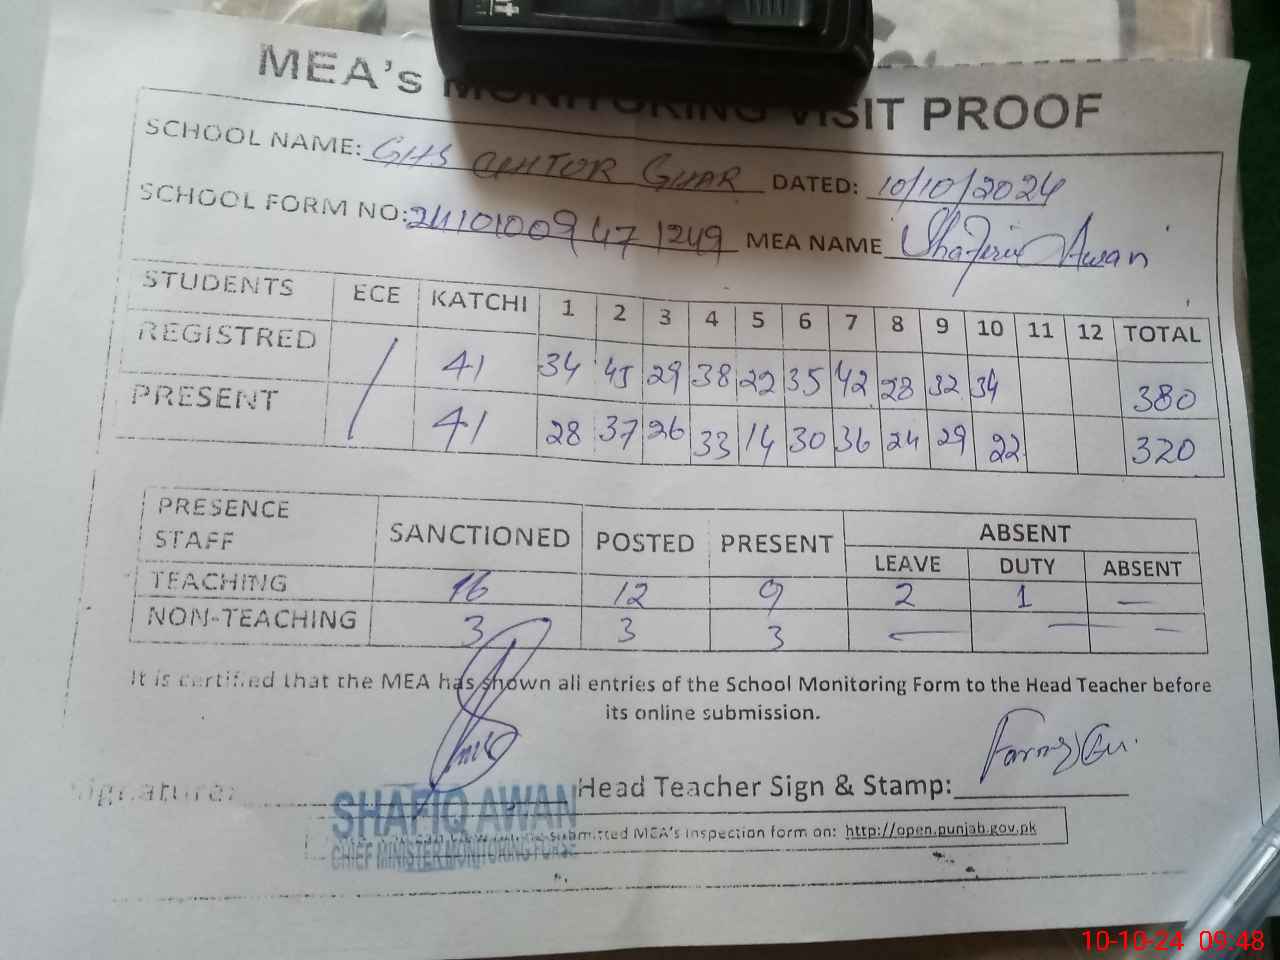 MEA's MONITORING VISIT PROOF
SCHOOL NAME: GHS CHITOR GHAR DATED: 10/10/2024
SCHOOL FORM NO: 24101009 47 1249 MEA NAME Shafiq Awan
STUDENTS ECE KATCHI 1 2 3 4 5 6 7 8 9 10 11 12 TOTAL
REGISTRED / 41 34 45 29 38 22 35 42 28 32 34 380
PRESENT 41 28 37 26 33 14 30 36 24 29 22 320
PRESENCE STAFF SANCTIONED POSTED PRESENT ABSENT
LEAVE DUTY ABSENT
TEACHING 16 12 9 2 1 —
NON-TEACHING 3 3 3 — — —
It is certified that the MEA has shown all entries of the School Monitoring Form to the Head Teacher before
its online submission.
Signature: Head Teacher Sign & Stamp:
SHAFIQ AWAN
CHIEF MINISTER MONITORING FORSE
submitted MEA's inspection form on: http://open.punjab.gov.pk
10-10-24 09:48